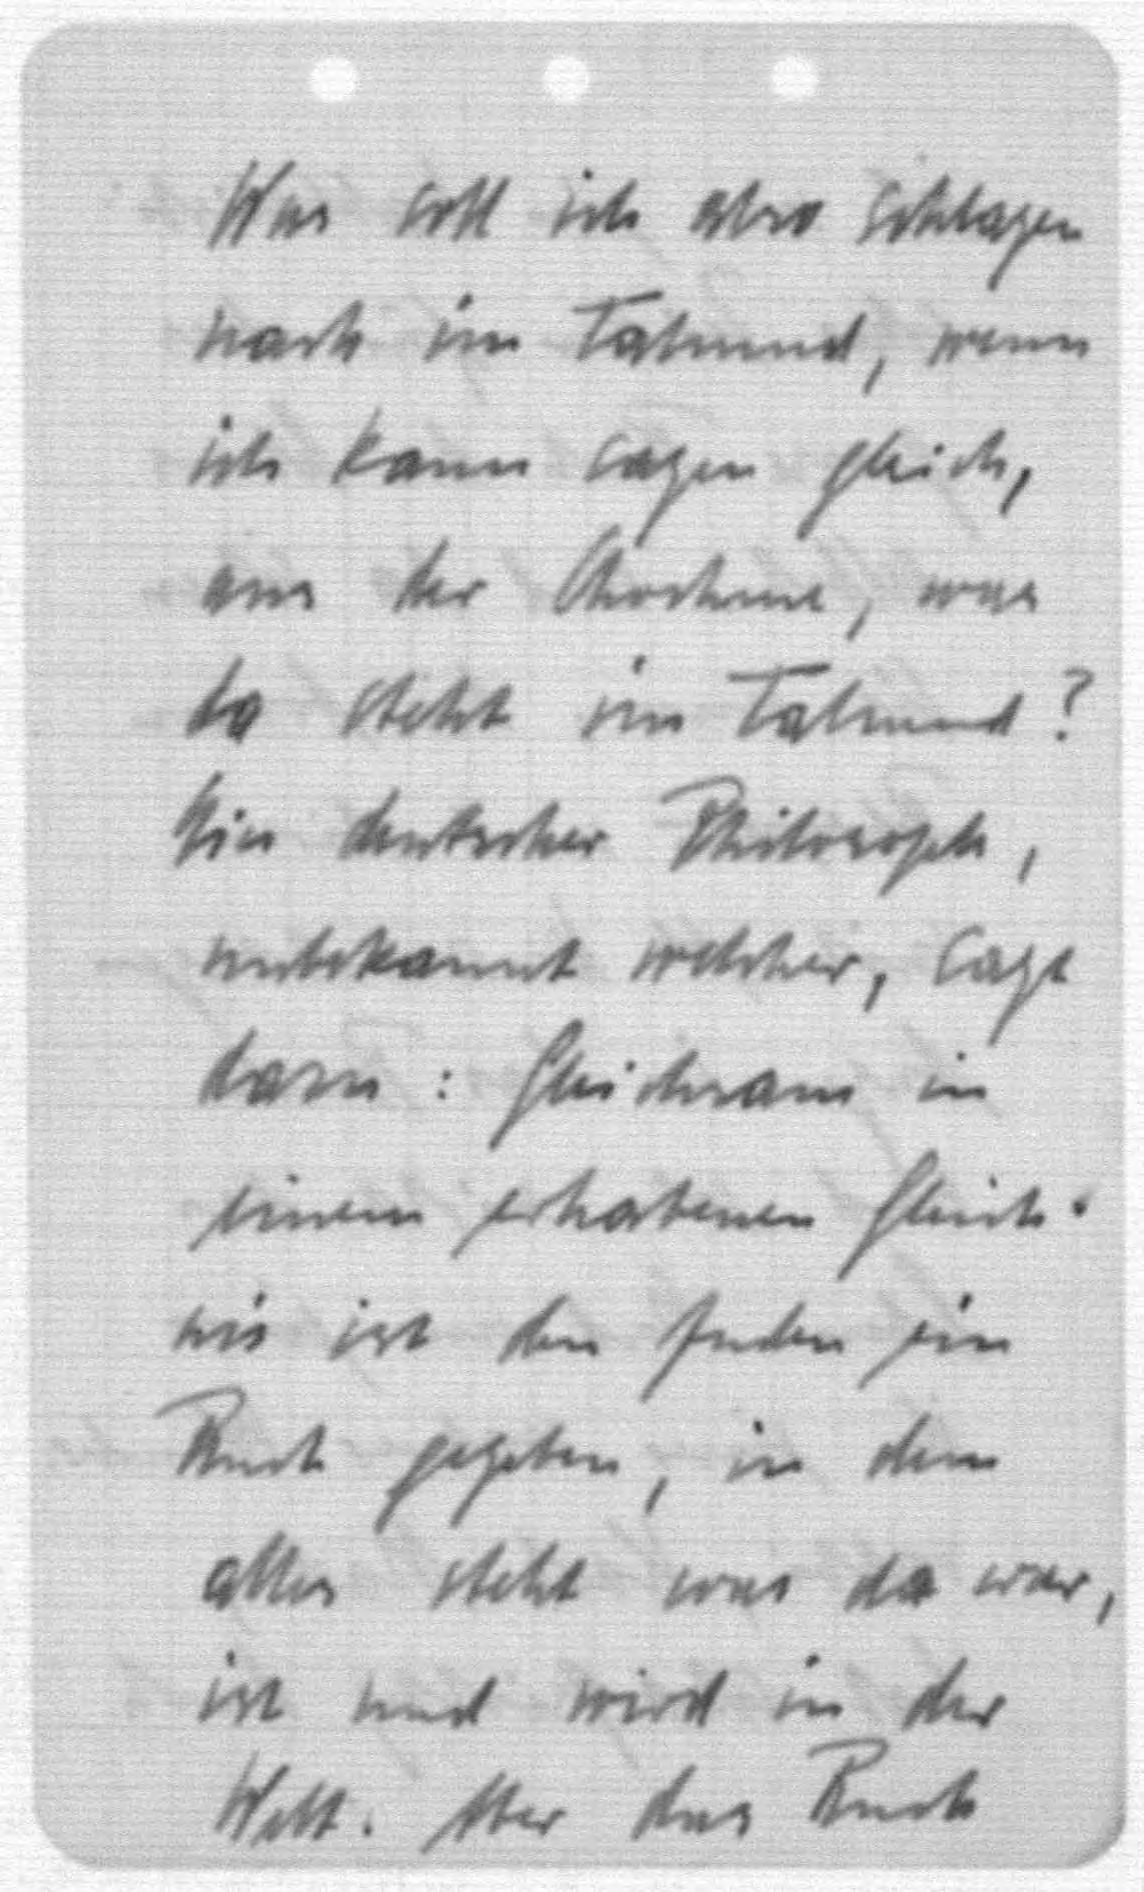 Was soll ich also schlagen
nach im Talmud, wenn
ich kann sagen gleich,
aus der Chochme, was
da steht im Talmud?
Ein deutscher Philosoph,
unbekannt welcher, sagt
dazu: Gleichsam in
einem erhabenen Gleich-
nis ist den Juden ein
Buch gegeben, in dem
alles steht was da war,
ist und wird in der
Welt. Aber das Buch